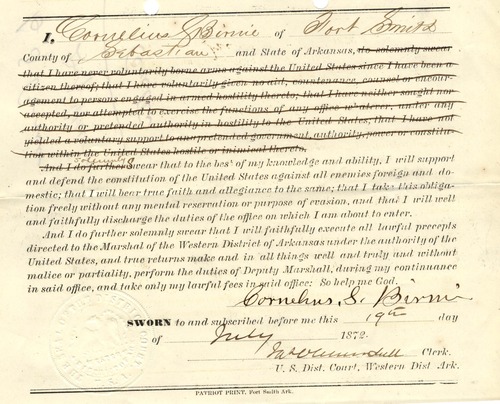 I, Cornelius S Birnie of Fort Smith
County of Sebastian and State of Arkansas, do solemnly swear
that I have never voluntarily borne arms against the United States since I have been a
citizen thereof; that I have voluntarily given no aid, countenance, counsel or encour-
agement to persons engaged in armed hostility thereto; that I have neither sought nor
accepted, nor attempted to exercise the functions of any office whatever, under any
authority or pretended authority in hostility to the United States, that I have not
yielded a voluntary support to any pretended government, authority, power or constitu-
tion within the United States hostile or inimical thereto.
And I do further solemnly swear that to the best of my knowledge and ability, I will support
and defend the constitution of the United States against all enemies foreign and do-
mestic; that I will bear true faith and allegiance to the same; that I take this obliga-
tion freely without any mental reservation or purpose of evasion, and that I will well
and faithfully discharge the duties of the office on which I am about to enter.
And I do further solemnly swear that I will faithfully execute all lawful precepts
directed to the Marshal of the Western District of Arkansas under the authority of the
United States, and true returns make and in all things well and truly and without
malice or partiality, perform the duties of Deputy Marshall, during my continuance
in said office, and take only my lawful fees in said office: So help me God.
Cornelius. S. Birnie
SWORN to and subscribed before me this 19th day
of July 1872.
Clerk.
U. S. Dist. Court, Western Dist Ark.
PATRIOT PRINT, Fort Smith Ark.